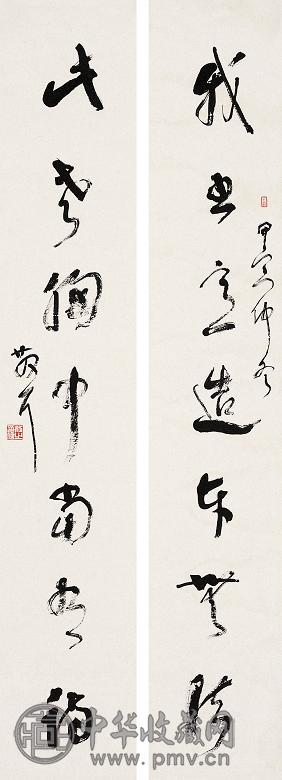 我書意造本無法
甲寅仲冬
此老胸中常有詩
散耳
中华收藏网
www.pmv.cn